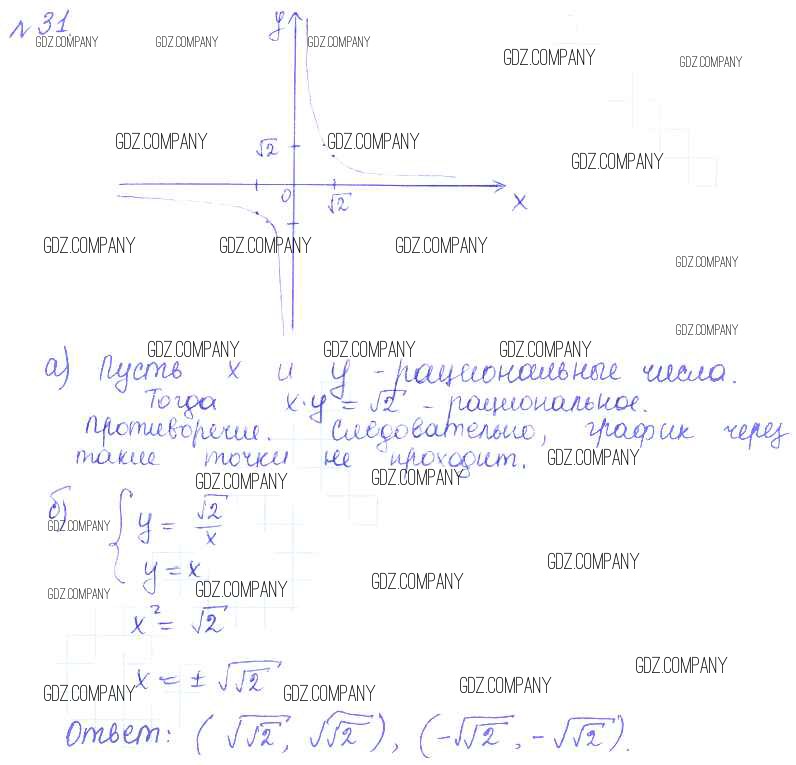 №31.
GDZ.COMPANY GDZ.COMPANY GDZ.COMPANY
y
GDZ.COMPANY GDZ.COMPANY
GDZ.COMPANY √2 GDZ.COMPANY
GDZ.COMPANY
0 √2 x
GDZ.COMPANY GDZ.COMPANY GDZ.COMPANY
GDZ.COMPANY
GDZ.COMPANY
GDZ.COMPANY GDZ.COMPANY GDZ.COMPANY
а) Пусть x и y - рациональные числа.
Тогда x·y = √2 - рациональное.
Противоречие. Следовательно, график через
такие точки не проходит.
GDZ.COMPANY
GDZ.COMPANY GDZ.COMPANY
б) { y = √2/x
GDZ.COMPANY
GDZ.COMPANY
y = x
GDZ.COMPANY GDZ.COMPANY GDZ.COMPANY
x² = √2
GDZ.COMPANY
x = ± √√2
GDZ.COMPANY GDZ.COMPANY GDZ.COMPANY
Ответ: (√√2, √√2), (-√√2, -√√2).